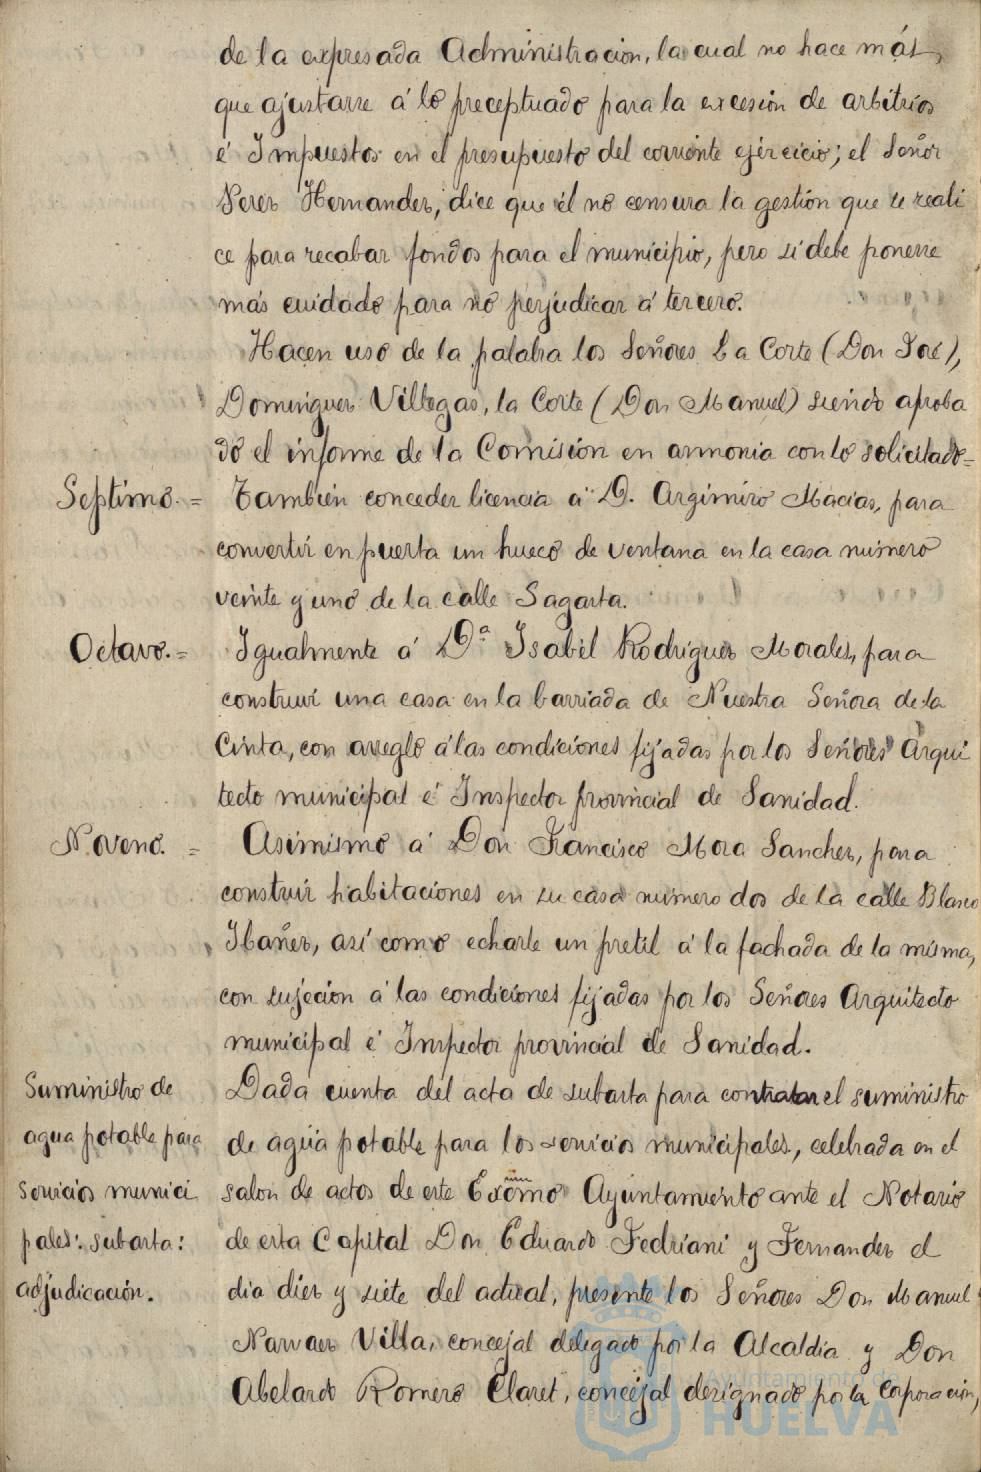 de la expresada Administracion, la cual no hace más
que ajustarse á lo preceptuado para la excesion de arbitrios
é Impuestos en el presupuesto del corriente ejercicio; el Señor
Perez Hernandez, dice que él no censura la gestión que se reali
ce para recabar fondos para el municipio, pero si debe ponerse
más cuidado para no perjudicar á tercero.
Hacen uso de la palabra los Señores La Corte (Don José),
Dominguez Villegas, la Corte (Don Manuel) siendo aproba
do el informe de la Comisión en armonia con lo solicitado=
Septimo.= Tambien conceder licencia á D. Argimiro Macias, para
convertir en puerta un hueco de ventana en la casa número
veinte y uno de la calle Sagasta.
Octavo.= Igualmente á Dª Isabel Rodriguez Morales, para
construir una casa en la barriada de Nuestra Señora de la
Cinta, con arreglo á las condiciones fijadas por los Señores Arqui
tecto municipal é Inspector provincial de Sanidad.
Noveno.= Asimismo á Don Francisco Mora Sanchez, para
construir habitaciones en su casa número dos de la calle Blasco
Ibañez, así como echarle un pretil á la fachada de la misma,
con sujecion á las condiciones fijadas por los Señores Arquitecto
municipal é Inspector provincial de Sanidad.
Suministro de
agua potable para
servicios munici
pales: subasta:
adjudicación.
Dada cuenta del acta de subasta para contratar el suministro
de agua potable para los servicios municipales, celebrada en el
salon de actos de este Excmo Ayuntamiento ante el Notario
de esta Capital Don Eduardo Fedriani y Fernandez el
dia diez y siete del actual, presente los Señores Don Manuel
Narvaez Villa, concejal delegado por la Alcaldia y Don
Abelardo Romero Claret, concejal designado por la Corporacion,
Ayuntamiento de
HUELVA